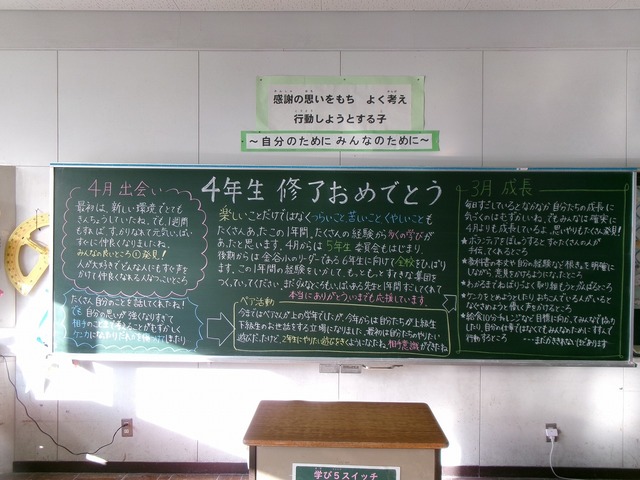 感謝の思いをもち よく考え
行動しようとする子
～自分のために みんなのために～
4年生 修了おめでとう
4月 出会い
最初は、新しい環境でとても
きんちょうしていたね。でも、1週間
もすれば、すっかりなれて元気いっぱい
すぐに仲良くなりましたね。
みんなの良いところ①発見!
人が大好きでどんな人にもすぐ声を
かけて仲良くなれる人なつっこいところ
たくさん自分のことを話してくれたね!
でも自分の思いが強くなりすぎて
相手のことまで考えることがむずかしい
楽しいことだけではなくつらいこと、苦しいこと、くやしいことも
たくさんあったこの1年間。たくさんの経験から多くの学びが
あったと思います。4月からは5年生 委員会もはじまり、
後期からは全谷小のリーダーである6年生に向けて全校をひっぱり
ます。この1年間の経験をいかして、もっともっとすてきな集団を
つくっていってください。まだみなでもいばしある先生と1年間すごしてくれて
本当にありがとういつまでも応援しています。
ペア活動
今まではペアさんが上の学年でしたが、今年からは自分たちが上級生
下級生のお世話をする立場になりました。最初は自分たちのやりたい
遊びだったけど、2年生にやりたい遊びをきくようになったね。相手意識ができたね
3月 成長
毎日すごしているとなかなか自分たちの成長に
気づくのはむずかしいね。でもみんなは確実に
4月よりも成長しているよ。思いやりもたくさん発見!
★ボランティアをぼしゅうするとたくさんの人が
手伝ってくれるところ
★教科書の本文や自分の経験など根きょを明確に
しながら意見をかけるようになったところ
★わかるまでねばりよく取り組もうとがんばるところ
★ケンカをとめようとしたり、おちこんでいる人がいると
なぐさめようと優しく声をかけるところ
★給食10分チャレンジなど目標に向かってみんなで協力
したり、自分の仕事ではなくてもみんなのためにすすんで
行動するところ
…まだかききれないほどあります
学び5スイッチ